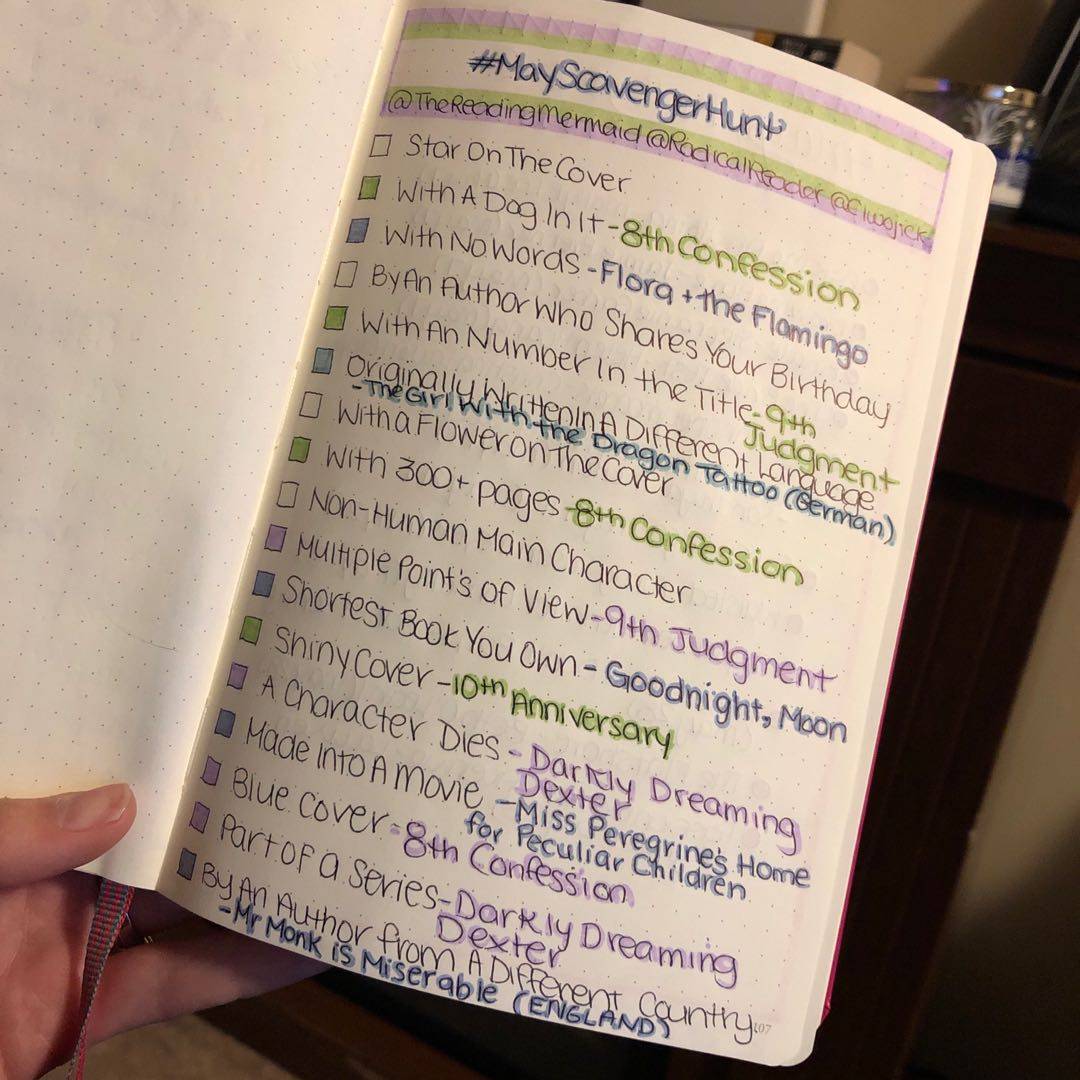 #MayScavengerHunt
@TheReadingMermaid @RadicalReader @Elwojick
Star On The Cover
With A Dog In It - 8th Confession
With No Words - Flora + the Flamingo
By An Author Who Shares Your Birthday
With An Number In the Title - 9th
Judgment
Originally Written In A Different Language
- The Girl With the Dragon Tattoo (German)
With a Flower on The Cover
With 300+ pages - 8th Confession
Non-Human Main Character
Multiple Point's of View - 9th Judgment
Shortest Book You Own - Goodnight, Moon
Shiny Cover - 10th Anniversary
A Character Dies - Darkly Dreaming
Dexter
Made Into A Movie - Miss Peregrine's Home
for Peculiar Children
Blue Cover - 8th Confession
Part of a Series - Darkly Dreaming
Dexter
By An Author from A Different Country
- Mr Monk is Miserable (ENGLAND)
107